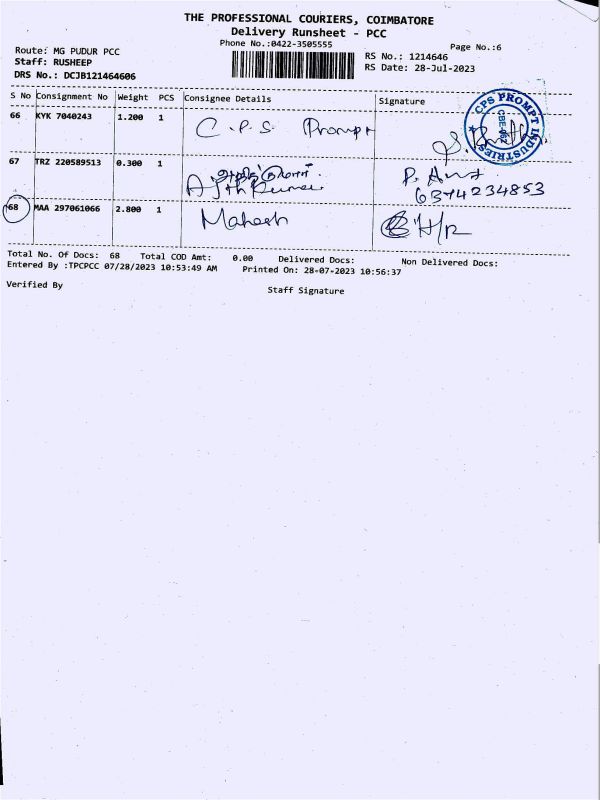 THE PROFESSIONAL COURIERS, COIMBATORE
Delivery Runsheet - PCC
Phone No.:0422-3505555
Page No.:6
Route: MG PUDUR PCC
Staff: RUSHEEP
DRS No.: DCJB121464606
RS No.: 1214646
RS Date: 28-Jul-2023
S No Consignment No Weight PCS Consignee Details Signature
66 KYK 7040243 1.200 1 C.P.S. Prompt
CPS PROMPT INDUSTRIES
67 TRZ 220589513 0.300 1
Ajith Kumar
6374234853
68 MAA 297061066 2.800 1 Mahesh
Total No. Of Docs: 68 Total COD Amt: 0.00 Delivered Docs: Non Delivered Docs:
Entered By :TPCPCC 07/28/2023 10:53:49 AM Printed On: 28-07-2023 10:56:37
Verified By
Staff Signature